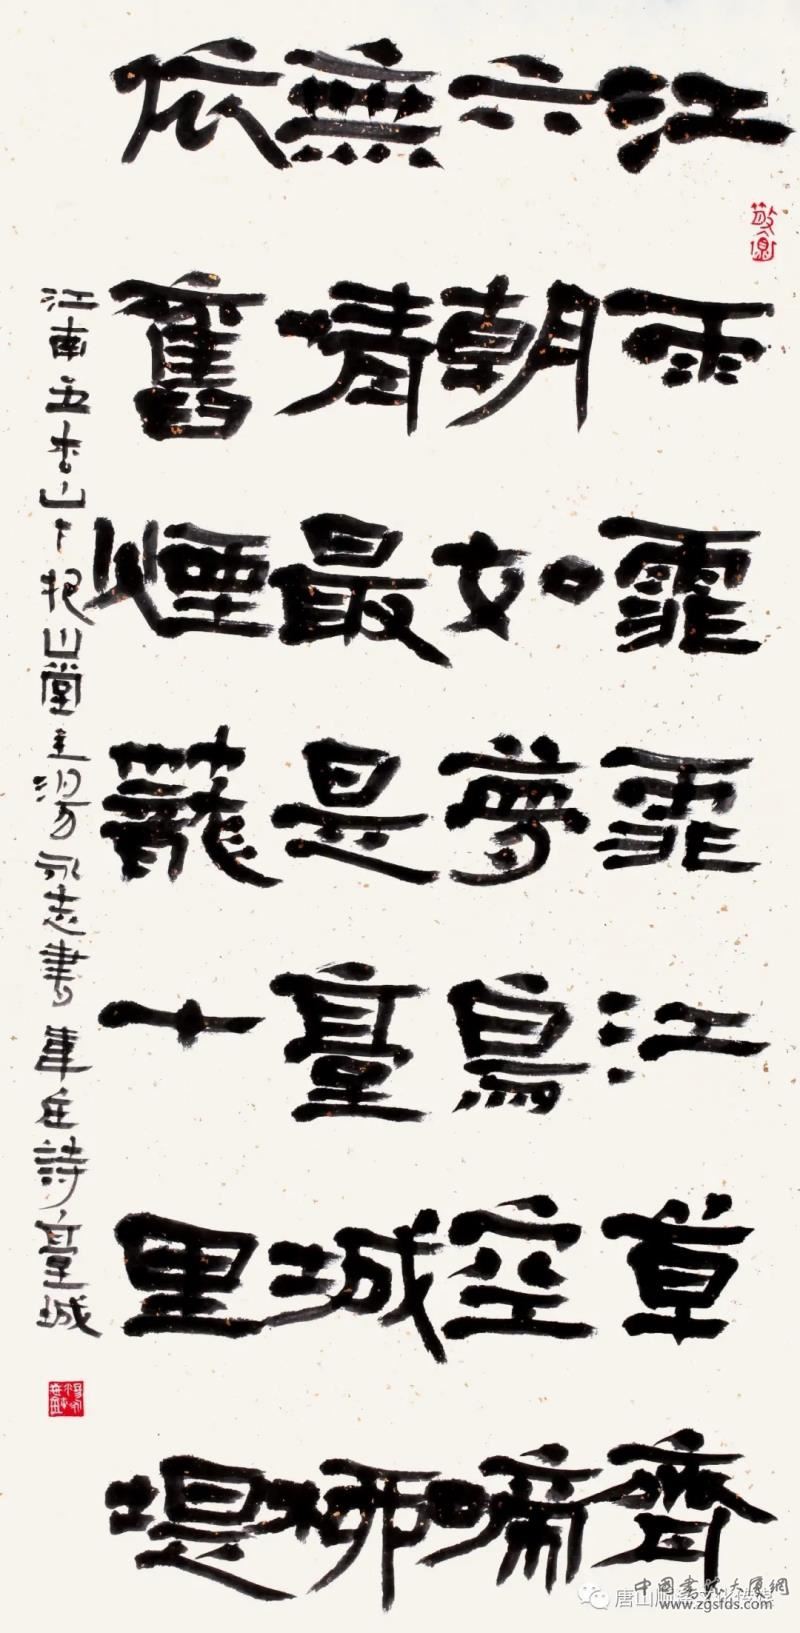 江雨霏霏江草齊
六朝如夢鳥空啼
無情最是臺城柳
依舊煙籠十里堤
江南五山下山堂主湯永志書韋庄詩臺城
中国書法大厦網
www.zgsfds.com
唐山